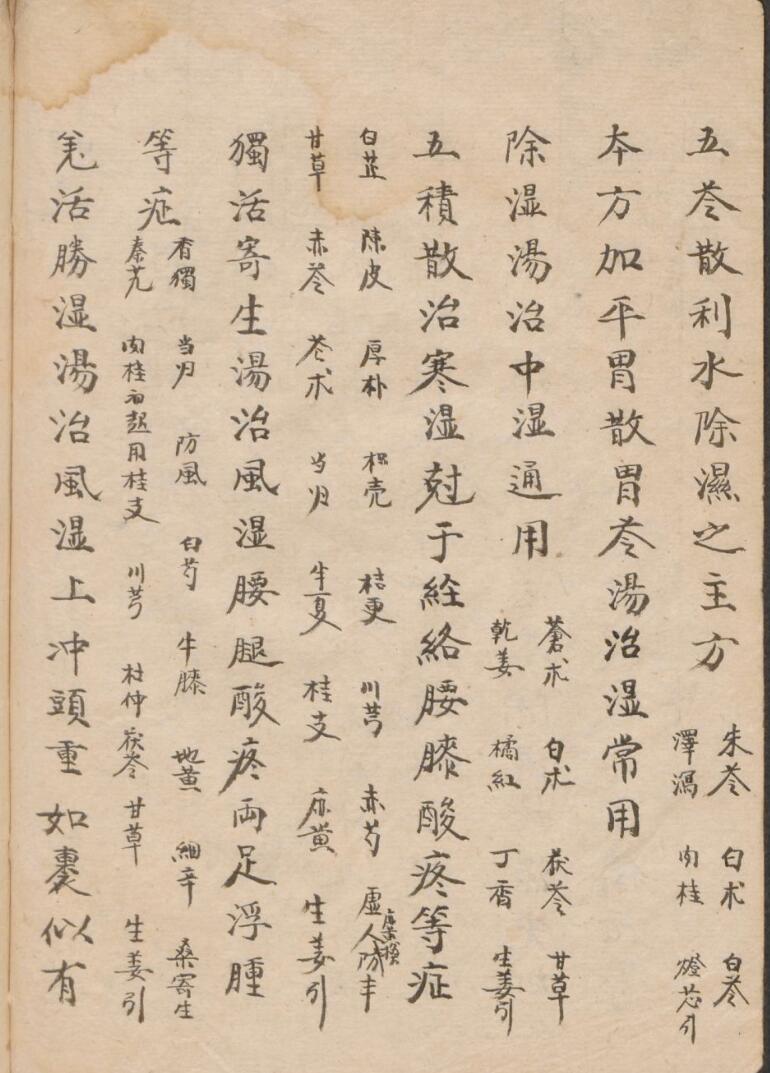 五苓散利水除濕之主方
朱苓 白朮 白苓
澤瀉 肉桂 燈芯引
本方加平胃散胃苓湯治湿常用
除湿湯治中湿通用
蒼朮 白朮 茯苓 甘草
乾姜 橘紅 丁香 生姜引
五積散治寒湿尅于経絡腰膝酸疼等症
白芷 陳皮 厚朴 枳壳 桔更 川芎 赤芍 虚人
甘草 赤苓 苍朮 当归 半夏 桂支 麻黄 生姜引
獨活寄生湯治風湿腰腿酸疼両足浮腫
等症
香獨 当归 防風 白芍 牛膝 地黄 細辛 桑寄生
秦艽 肉桂 用桂支 川芎 杜仲 茯苓 甘草 生姜引
羗活勝湿湯治風湿上冲頭重如裹似有